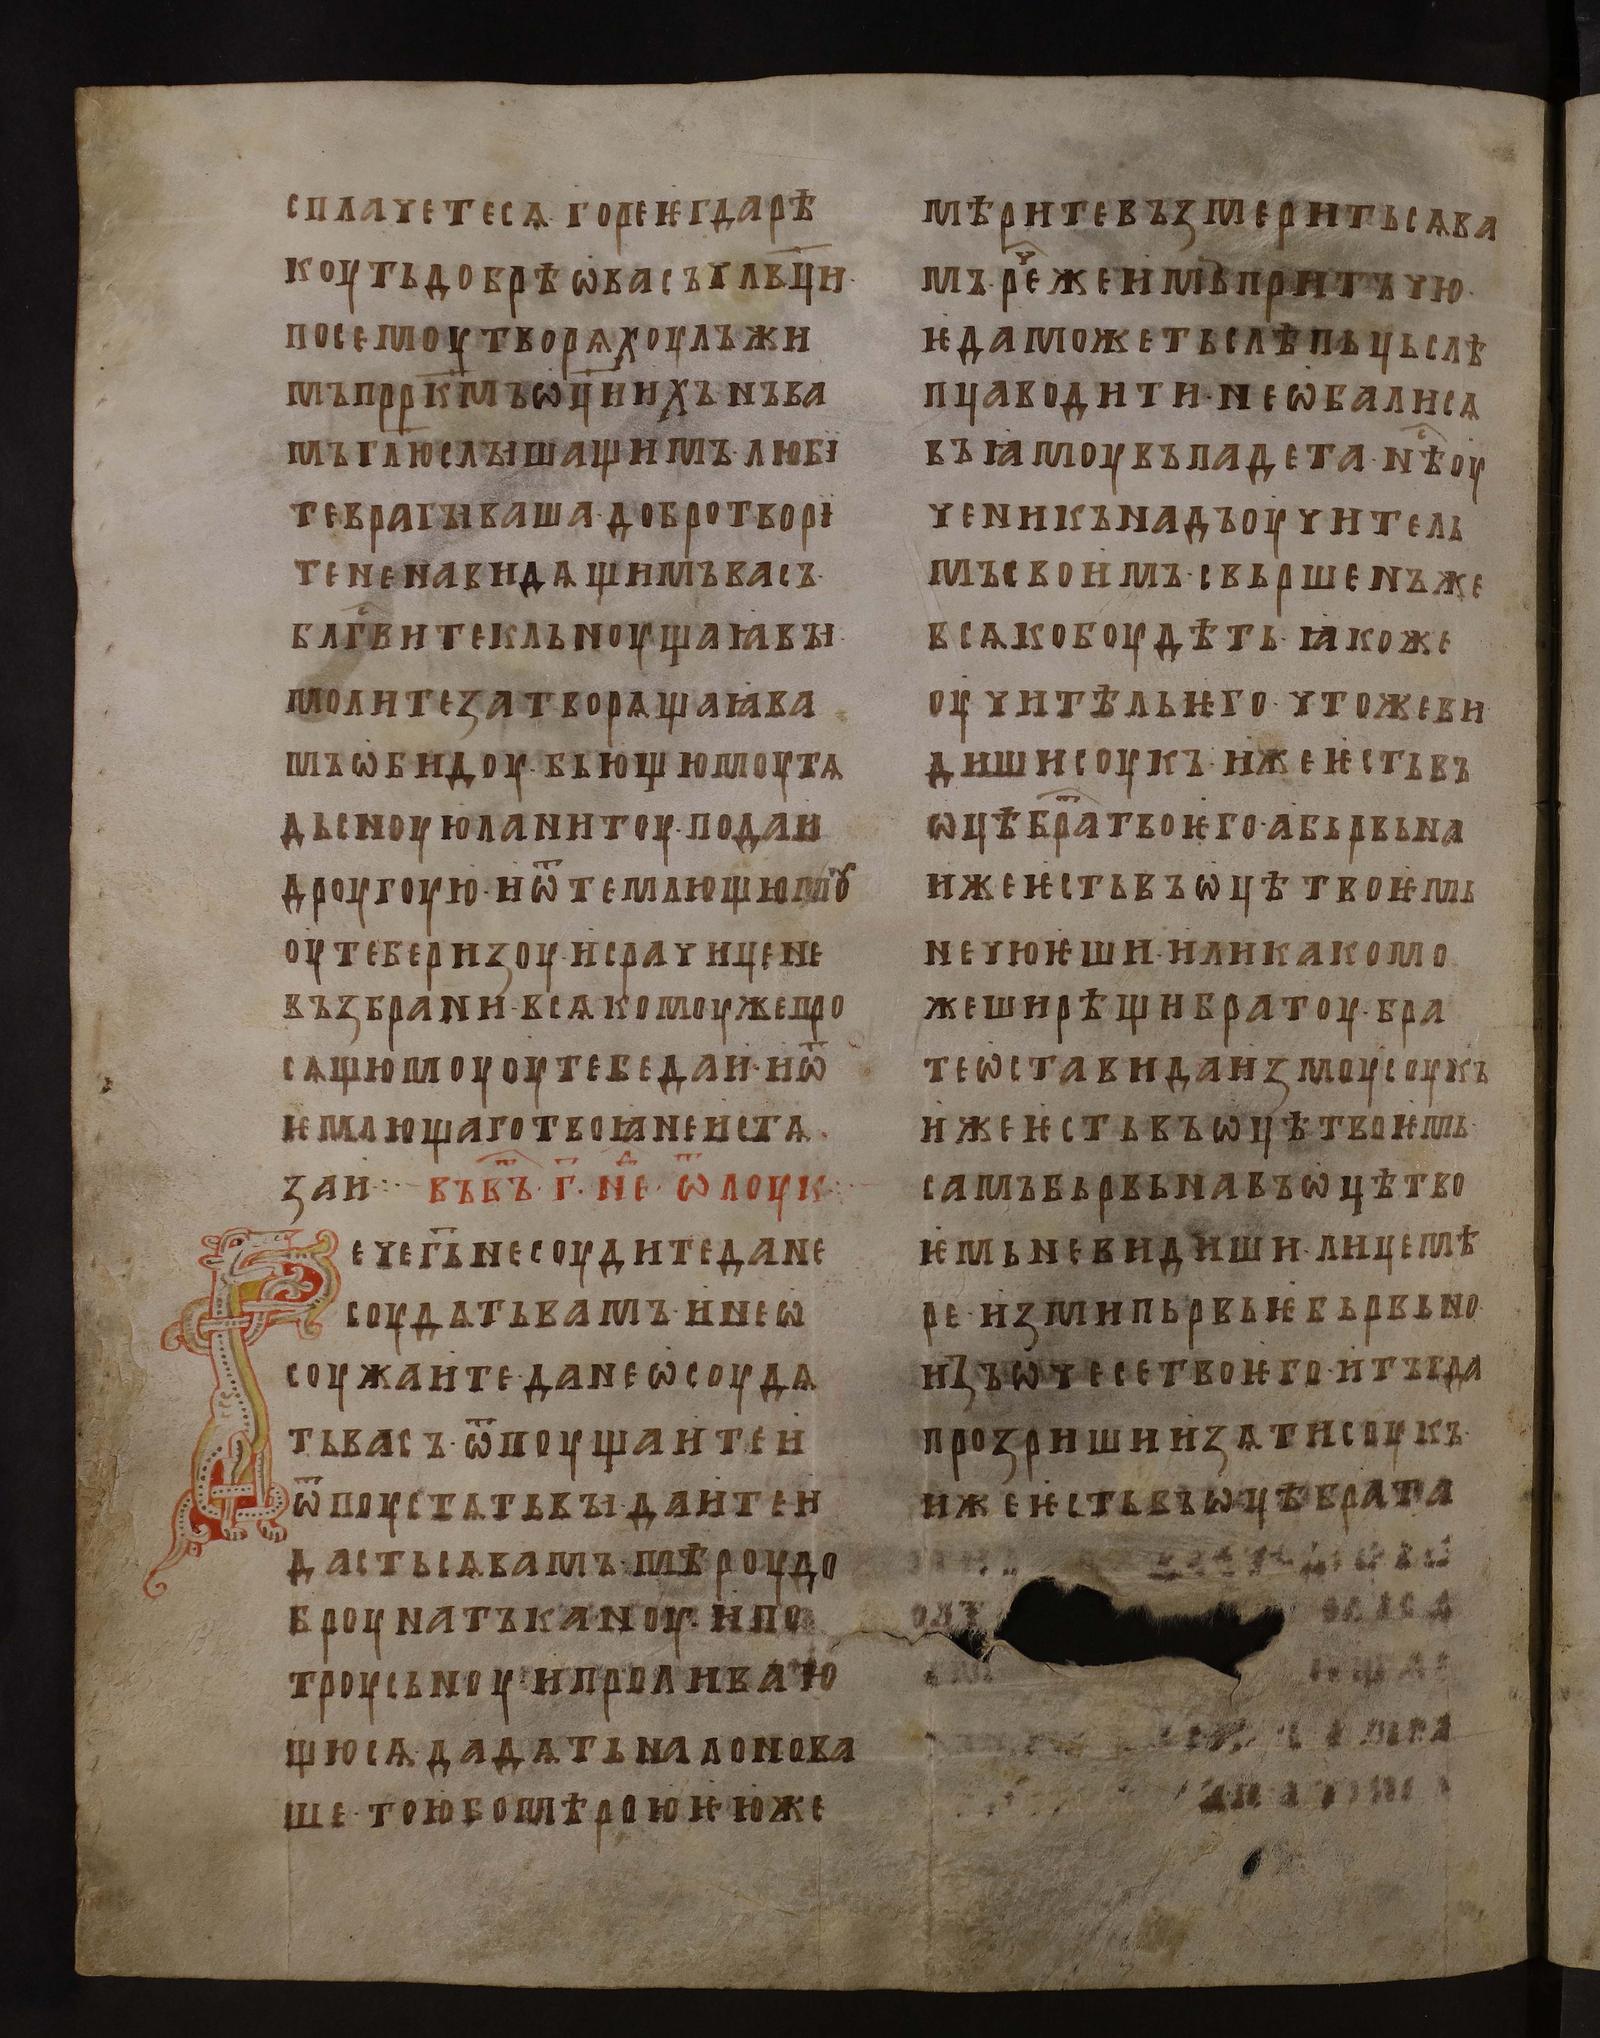 сплачетесѧ· горѥ ѥгда рѣ
коуть добрѣ ѡ васъ члвц҃и·
по семоу творѧхоу лъжи
мъ пррк҃мъ ѡц҃и ихъ· нъ ва
мъ гл҃ю слышащимъ· любі
те врагы ваша· добро творі
те ненавидѧщимъ васъ·
блгв҃ите кльноущаꙗ вы·
молите за творѧщаꙗ ва
мъ ѡбидоу· бьющюмоу тѧ
дьсноую ланитоу· подаи
дроугоую· и ѿ ѥмлющюмꙋ
оу тебе ризоу· и срачице не
възбрани· всѧкомоу же про
сѧщюмоу оу тебе даи· и ѿ
ѥмлющаго твоꙗ не истѧ·
заи· въ въ҃· г҃· не҃· ѿ лоук·
Рече гь҃ не соудите да не
соудѧть вамъ· и не ѡ
соужаите· да не ѡсоудѧ
ть васъ· ѿпоущаите и
ѿпоустѧть вы· даите и
дасть сѧ вамъ· мѣроу до
броу наткаканоу· и по
троусьноу· и проливаю
щюсѧ· дадѧть на лоно ва
ше· тою бо мѣрою ѥюже
мѣрите възмерить сѧ ва
мъ· реч҃ же имъ притъчю·
ѥда можеть слѣпьць слѣ
пца водити· не ѡба ли сѧ
въ ꙗмоу въпадета· нѣс҃ оу
ченикъ надъ оучитель
мь своимъ· свьршенъ же
всѧко боудѣть· ꙗкоже
оучитѣль ѥго· что же ви
диши соукъ· иже ѥсть въ
ѡцѣ брат҃а твоѥго· а бьрвьна
иже ѥсть въ ѡцѣ твоѥмь
не чюѥши· или како мо
жеши рѣщи братоу· бра
те ѡстави да измоу соукъ
иже ѥсть въ ѡцѣ твоѥмь·
самъ бьрвьна въ ѡцѣ тво
ѥмь не видиши· лицемѣ
ре· изми пьрвьѥ бьрвьно
изъ ѡчесе твоѥго· и тъгда
прозриши изѧти соукъ·
иже ѥсть въ ѡцѣ брата